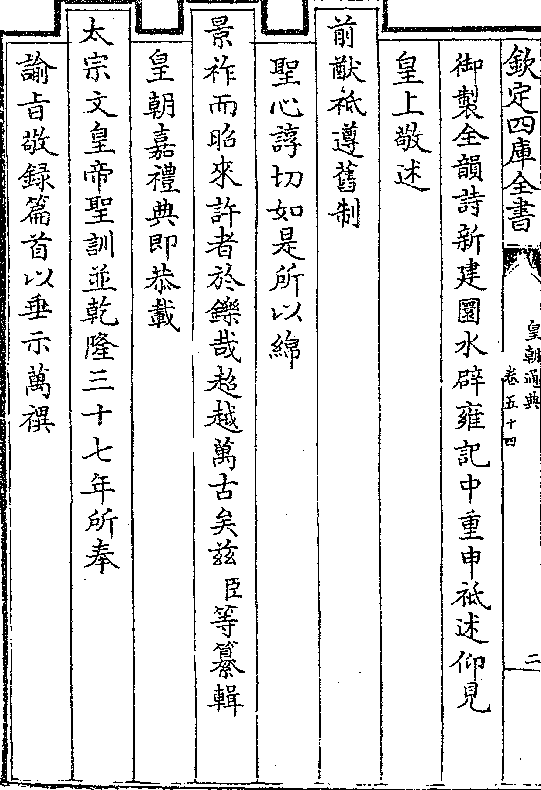 欽定四庫全書
皇朝通典
卷五十四
二
御製全韻詩新建圜水辟雍記中重申祗述仰見
皇上敬述
前猷祗遵舊制
聖心諄切如是所以綿
景祚而昭來許者於鑠哉超越萬古矣茲臣等纂輯
皇朝嘉禮典即恭載
太宗文皇帝聖訓並乾隆三十七年所奉
諭旨敬録篇首以垂示萬禩